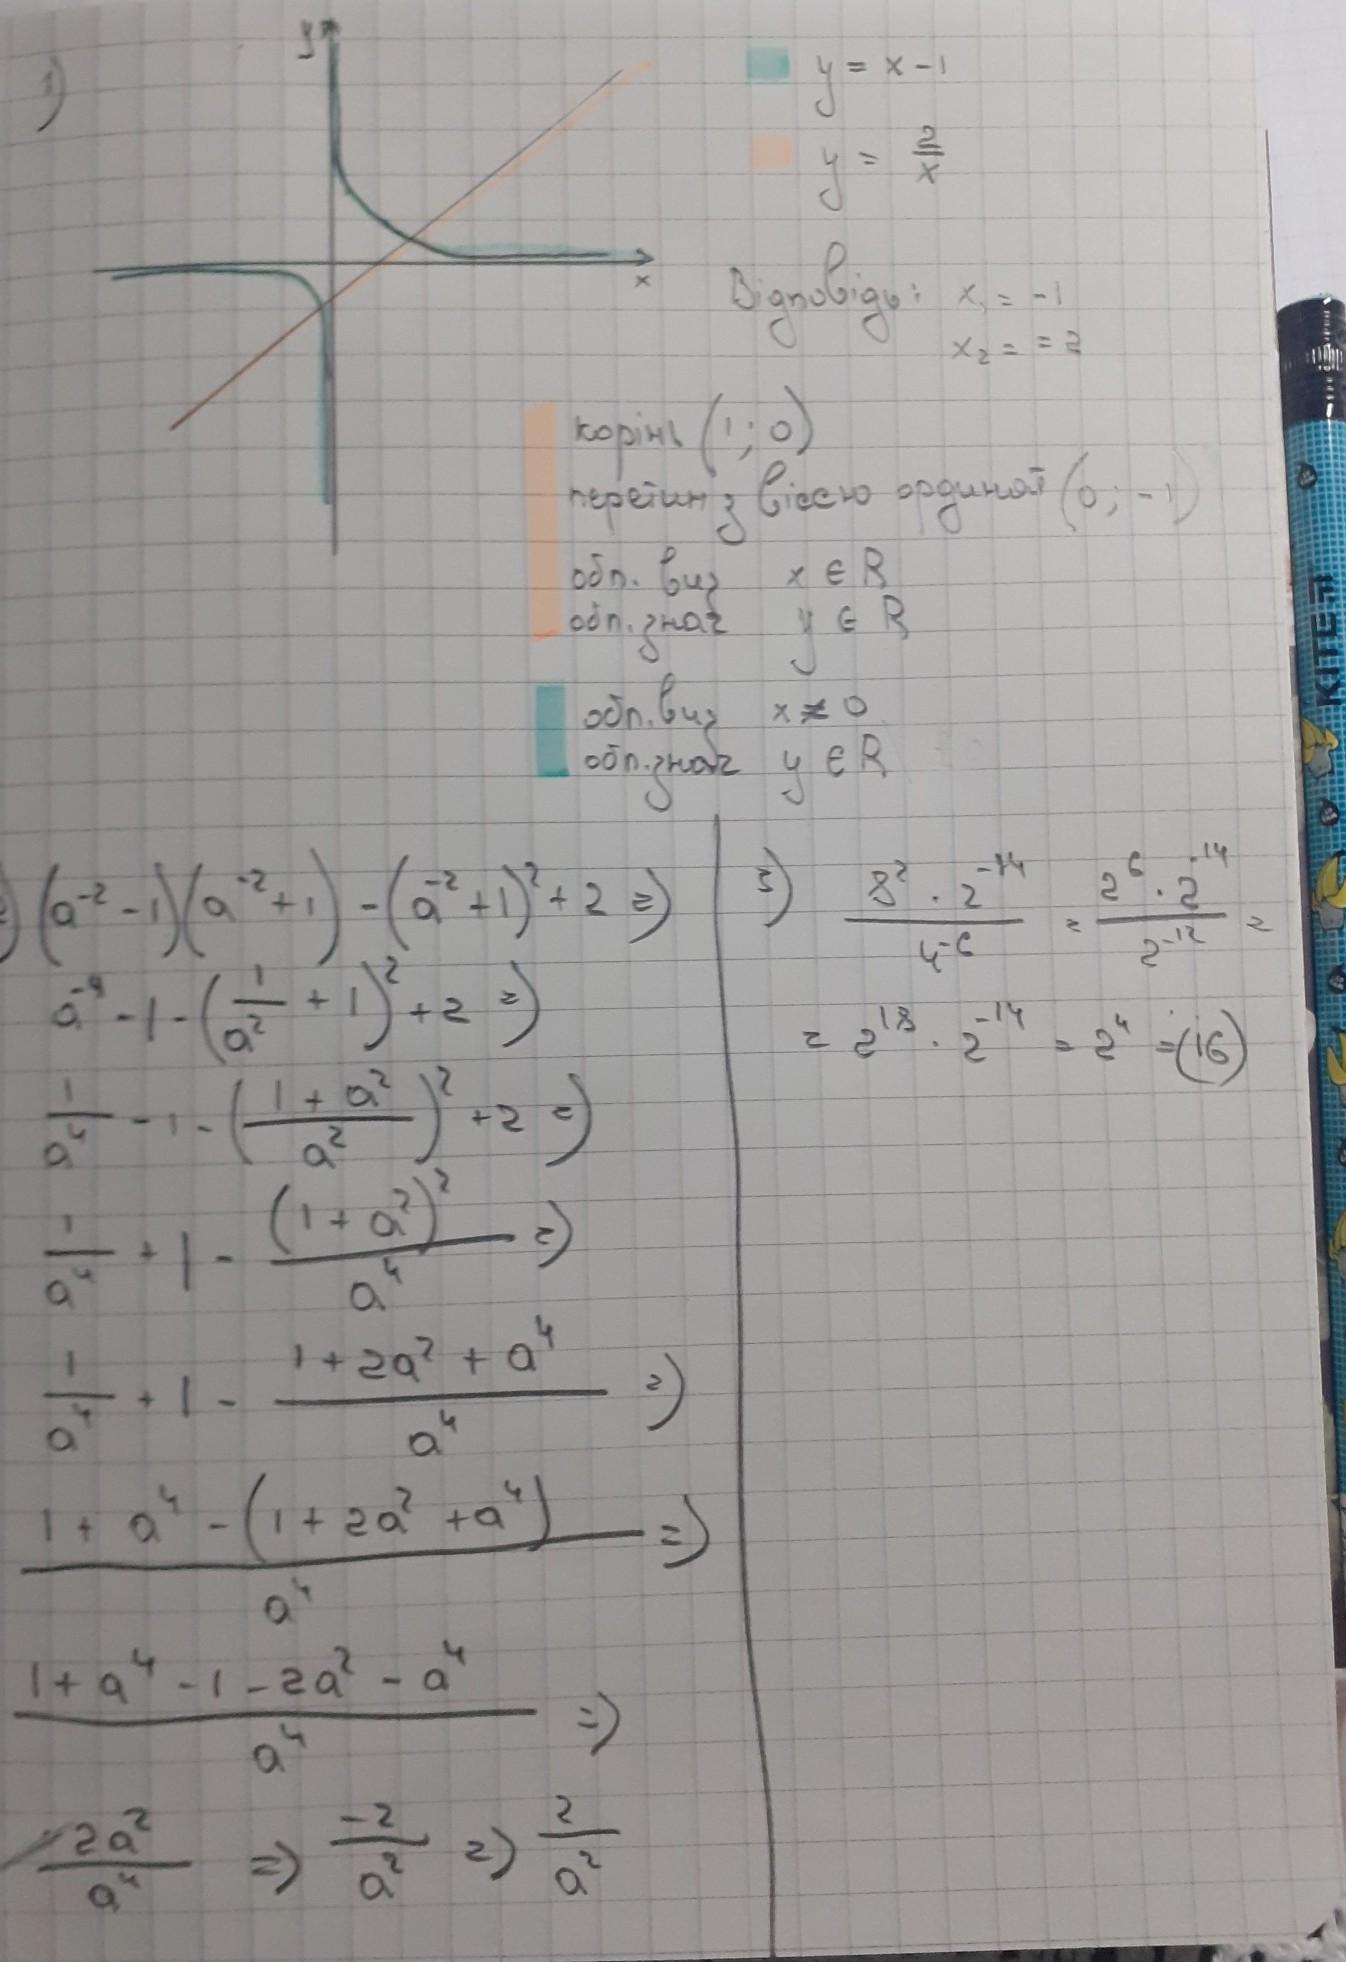 1)
y
x
y = x - 1
y = 2/x
Відповідь: x₁ = -1
x₂ = = 2
корінь (1; 0)
перетин з віссю ординат (0; -1)
обл. виз x ∈ R
обл. знач y ∈ R
обл. виз x ≠ 0
обл. знач y ∈ R
(a⁻² - 1)(a⁻² + 1) - (a⁻² + 1)² + 2 =>
a⁻⁴ - 1 - (1/a² + 1)² + 2 =>
1/a⁴ - 1 - ((1 + a²)/a²)² + 2 =>
1/a⁴ + 1 - (1 + a²)²/a⁴ =>
1/a⁴ + 1 - (1 + 2a² + a⁴)/a⁴ =>
(1 + a⁴ - (1 + 2a² + a⁴))/a⁴ =>
(1 + a⁴ - 1 - 2a² - a⁴)/a⁴ =>
-2a²/a⁴ => -2/a² => 2/a²
3) (8² · 2⁻¹⁴)/4⁻⁶ = (2⁶ · 2⁻¹⁴)/2⁻¹² =
= 2¹⁸ · 2⁻¹⁴ = 2⁴ = (16)
KITE